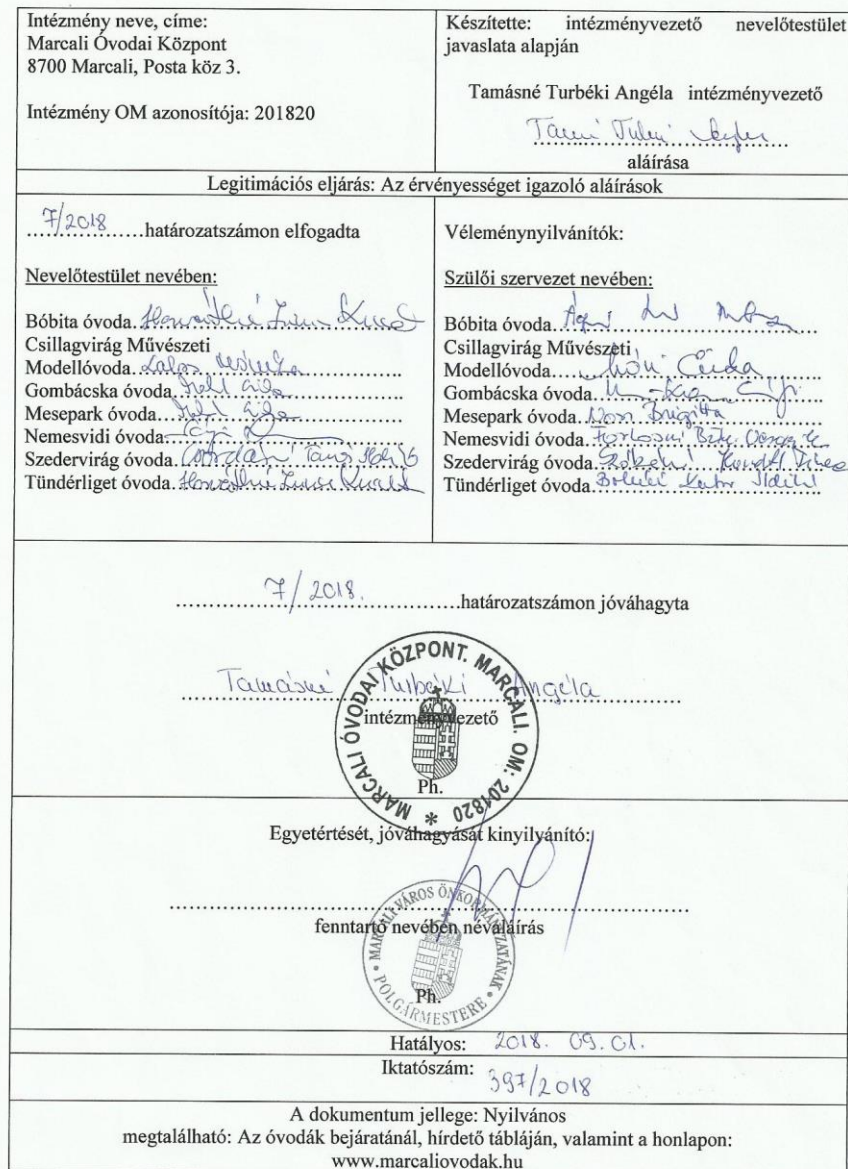 Intézmény neve, címe:
Marcali Óvodai Központ
8700 Marcali, Posta köz 3.
Intézmény OM azonosítója: 201820
Készítette: intézményvezető nevelőtestület
javaslata alapján
Tamásné Turbéki Angéla intézményvezető
aláírása
Legitimációs eljárás: Az érvényességet igazoló aláírások
7/2018 határozatszámon elfogadta
Nevelőtestület nevében:
Bóbita óvoda
Csillagvirág Művészeti
Modellóvoda
Gombácska óvoda
Mesepark óvoda
Nemesvidi óvoda
Szedervirág óvoda
Tündérliget óvoda
Véleménynyilvánítók:
Szülői szervezet nevében:
Bóbita óvoda
Csillagvirág Művészeti
Modellóvoda
Gombácska óvoda
Mesepark óvoda Brigitta
Nemesvidi óvoda
Szedervirág óvoda
Tündérliget óvoda
7/2018. határozatszámon jóváhagyta
Tamásné Turbéki Angéla
intézményvezető
MARCALI ÓVODAI KÖZPONT. MARCALI. OM: 201820 *
Ph.
Egyetértését, jóváhagyását kinyilvánító:
fenntartó nevében névaláírás
MARCALI VÁROS ÖNKORMÁNYZATÁNAK • POLGÁRMESTERE •
Ph.
Hatályos: 2018. 09. 01.
Iktatószám: 397/2018
A dokumentum jellege: Nyilvános
megtalálható: Az óvodák bejáratánál, hírdető tábláján, valamint a honlapon:
www.marcaliovodak.hu